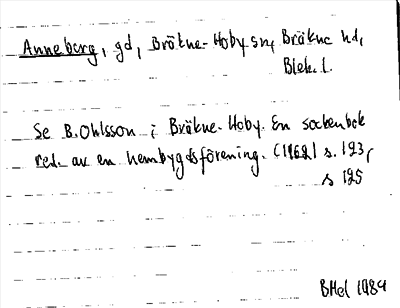 Anneberg, gd, Bräkne-Hoby sn, Bräkne hd,
Blek. l.
Se B. Ohlsson i Bräkne-Hoby. En sockenbok
red. av en hembygdsförening. (1962) s. 123,
s 125
BHel 1984